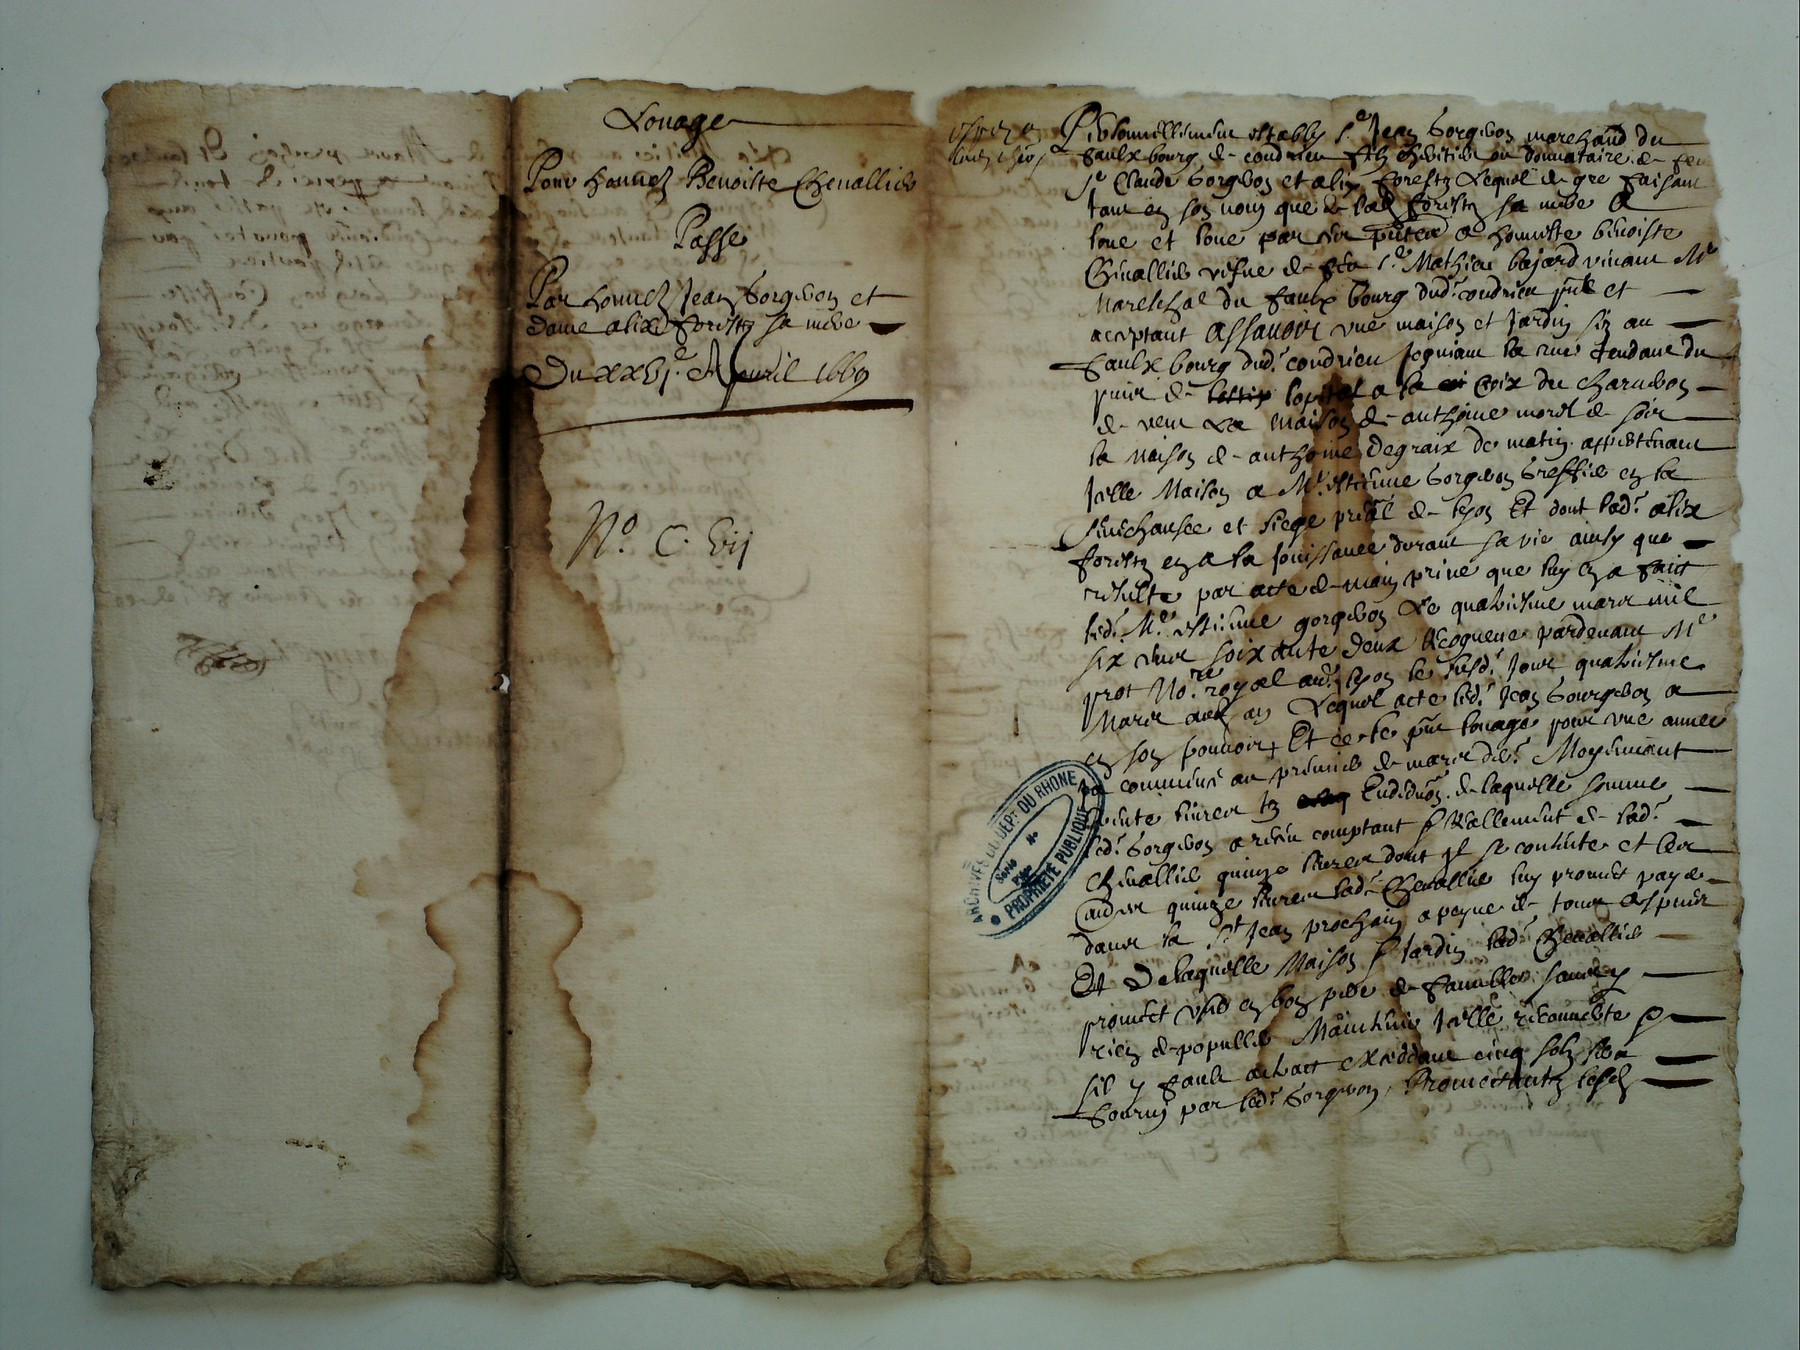 Louage
Pour honneste Benoiste Chevallier
Passé
Par honneste Jean Gorgeron et
dame alix forestz sa mere
Du xxvj.e Apvril 1669
No. C. vij
Personnellement estably Sr Jean Gorgeron marchand du
faulxbourg de condrieu filz heritier ou donnataire de feu
Sr Claude Gorgeron et alix forestz Lequel de gre faisant
tant en son nom que de lad forestz sa mere A
loue et loue par ces pntes a honneste benoiste
Chevallier vefve de feu Sr Mathieu bajard vivant Me
Mareschal du faulx bourg dud. condrieu pnte et
acceptant Assavoir une maison et Jardin siz au
faulxbourg dud. condrieu Joignant la rue tendant du
puis de lopital a la croix du charneron
de vent La maison de anthoine morel de soir
la maison de anthoine degraix de matin appartenant
Icelle Maison a Me estienne Gorgeron Greffier en la
Seneschausee et siege pnal de lyon Et dont lad. alix
forestz en a la jouissance durant sa vie ainsy que
resulte par acte de main privé que luy en a faict
led. Me estienne gorgeron Le quatriesme mars mil
six cens soixante deux Recogneue pardevant Me
prot No.re royal aud. lyon le susd. Jour quatriesme
Mars aud an Lequel acte led. Jean Gourgeron a
en son pouvoir Et ce le pnt louage pour une annee
ja commence au premier de mars der. Moyennant
trente livres tz de laquelle somme
led. Gorgeron a receu comptant Reallement de lad.
Chevallier quinze livres dont jl se contente et les
autres quinze livres lad. Chevallier luy promet payer
dans la St Jean prochain a peyne de tous despens
Et de laquelle Maison & Jardin lad. Chevallier
promet user en bon pere de famillee sans y
rien depopuller Maintenir Icelle recouverte
sil y fault achact exceddant cinq solz sera
fourny par led. Gorgeron, Promettantz lesd
ARCHIVES DU DEPT DU RHONE
PROPRIETE PUBLIQUE